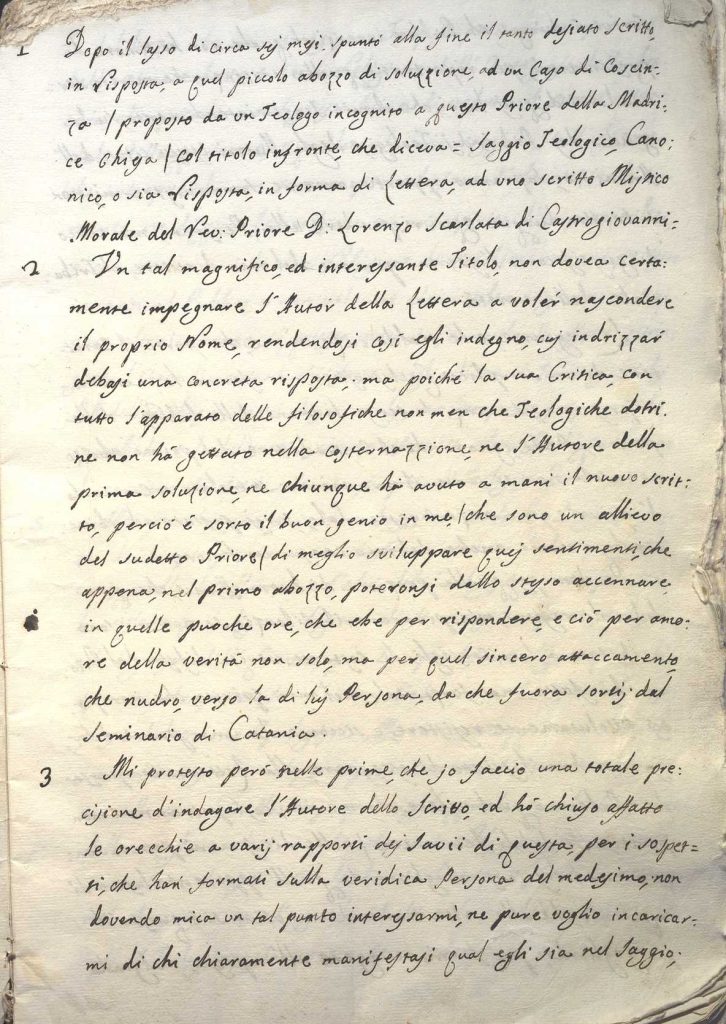 1 Dopo il lasso di circa sej mesi spuntó alla fine il tanto desiato scritto,
in risposta, a quel piccolo abozzo di soluzzione, ad un Caso di Coscin:
za / proposto da un Teologo incognito a questo Priore della Madri:
ce Chiesa / col titolo infronte, che diceva = Saggio Teologico, Cano:
nico, o sia Risposta, in forma di Lettera, ad uno scritto Mistico
Morale del Rev: Priore D: Lorenzo Scarlata di Castrogiovanni =
2 Un tal magnifico, ed interessante Titolo, non dovea certa:
mente impegnare l'Autor della Lettera a voler nascondere
il proprio Nome, rendendosi cosí egli indegno, cuj indrizzar
debasi una concreta risposta; ma poiché la sua Critica, con
tutto l'apparato delle filosofiche non men che Teologiche dotri:
ne non há gettato nella costernazzione, ne l'Autore della
prima soluzione, ne chiunque ha avuto a mani il nuovo scrit:
to, perció é sorto il buon genio in me / che sono un allievo
del sudetto Priore / di meglio sviluppare quej sentimenti, che
appena, nel primo abozzo, poteronsi dallo stesso accennare,
in quelle puoche ore, che ebe per rispondere, e ció per amo:
re della veritá non solo, ma per quel sincero attaccamento,
che nudro, verso la di luj Persona, da che fuora sortij dal
Seminario di Catania.
3 Mi protesto peró nelle prime che jo faccio una totale pre:
cisione d'indagare l'Autore dello Scritto, ed hó chiuso affatto
le orecchie a varij rapporti dej Savii di questa, per i sospet=
ti, che han formati sulla veridica Persona del medesimo, non
dovendo mica un tal punto interessarmi, ne pure voglio incaricar:
mi di chi chiaramente manifestasi qual egli sia nel Saggio;